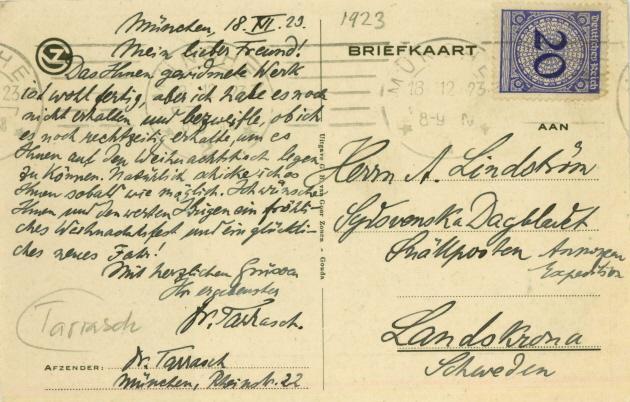 München, 18.XII.23.
Mein lieber Freund!
Das Ihnen gewidmete Werk
ist wohl fertig, aber ich habe es noch
nicht erhalten und bezweifle, ob ich
es noch rechtzeitig erhalte, um es
Ihnen auf den Weihnachtstisch legen
zu können. Natürlich schicke ich es
Ihnen sobald wie möglich. Ich wünsche
Ihnen und den werten Ihrigen ein fröhli-
ches Weihnachtsfest und ein glückli-
ches neues Jahr!
Mit herzlichen Grüssen
Ihr ergebenster
Dr. Tarrasch.
Tarrasch
AFZENDER: Dr. Tarrasch
München, Rheinstr. 22
Gouda
1923
BRIEFKAART
Deutsches Reich
20
18 12 23
8-9 N
AAN
Herrn A. Lindström
Sydsvenska Dagbladet
Snällposten Annonsen
Expedition
Landskrona
Schweden